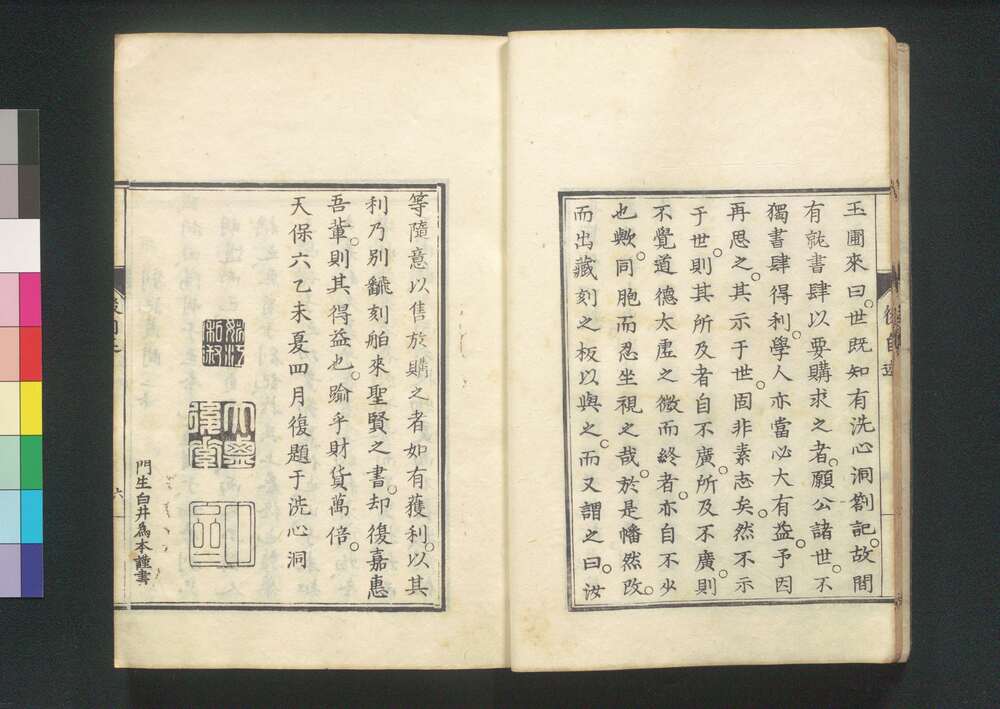 玉圃來曰。世既知有洗心洞劄記。故間
有就書肆以要購求之者。願公諸世。不
獨書肆得利。學人亦當必大有益。予因
再思之。其示于世。固非素志矣。然不示
于世。則其所及者自不廣。所及不廣。則
不覺道德太虛之微而終者。亦自不少
也歟。同胞而忍坐視之哉。於是幡然改。
而出藏刻之板以與之。而又謂之曰。汝
後自述
等隨意以售於購之者如有獲利。以其
利乃別翻刻舶來聖賢之書。却復嘉惠
吾輩。則其得益也。踰乎財貨萬倍。
天保六乙未夏四月復題于洗心洞
門生白井爲本謹書
六